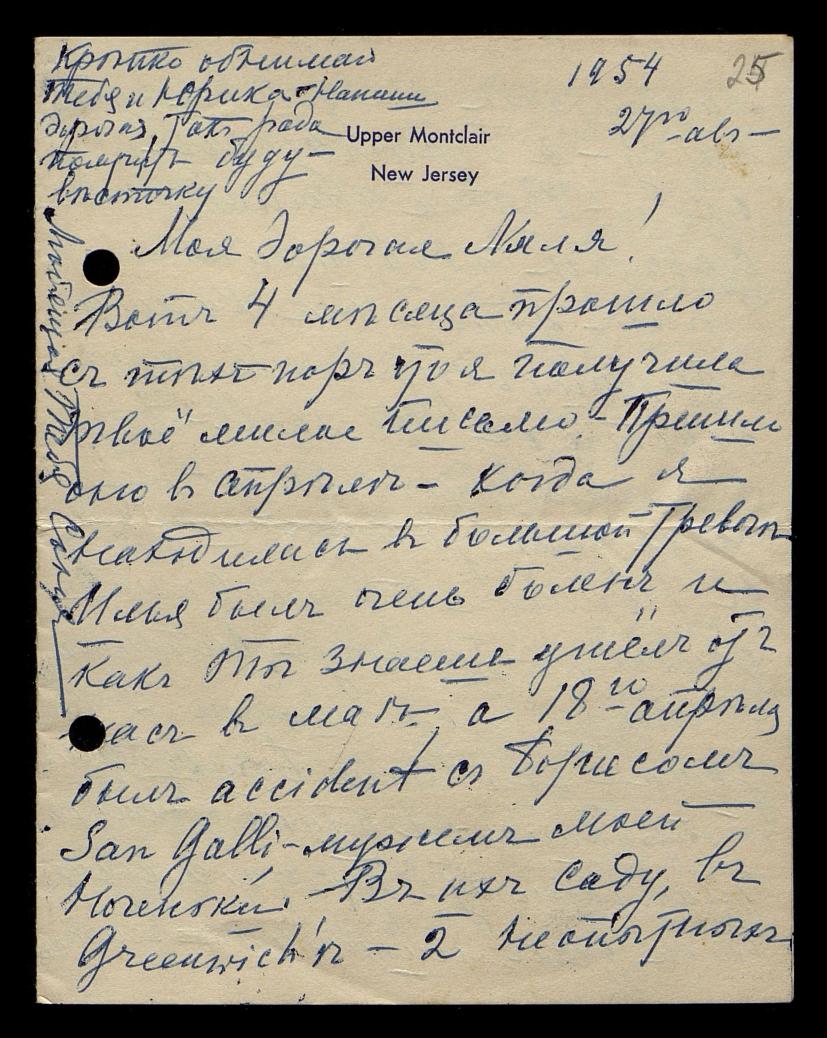 1954
25
27го авг-
Upper Montclair
New Jersey
Крѣпко обнимаю
Тебя и Юрика - Напиши
дорогая, такъ рада
получить буду -
вѣсточку
Любящая Тебя Соня
Моя дорогая Ляля!
Вотъ 4 мѣсяца прошло
съ тѣхъ поръ что я получила
твоё милое письмо - Пришло
оно в Апрѣлѣ - когда я
находилась в большой тревогѣ
Илья былъ очень боленъ и
какъ Ты знаешь ушёлъ отъ
насъ в маѣ, а 18го апрѣля
былъ accident съ Борисомъ
San Galli - мужемъ моей
Въ ихъ саду, въ
Greenwich'ѣ - 2 неопытныхъ